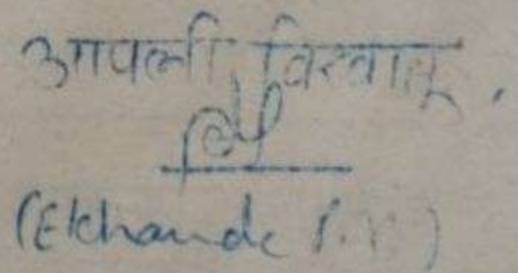 आपली विश्वासू,
(Ekhande P.